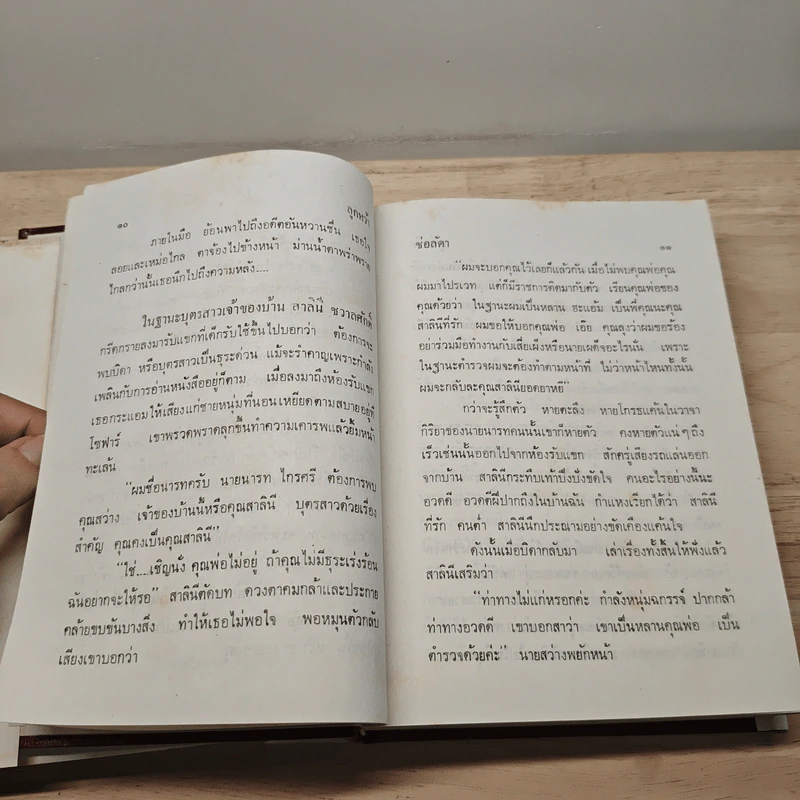 ๑๐
ลูกหว้า
ภายในมือ ย้อนพาไปถึงอดีตอันหวานชื่น เธอใจ
ลอยและเหม่อไกล ตาจ้องไปข้างหน้า ม่านน้ำตาพร่าพราย
ไกลกว่านั้นเธอนึกไปถึงความหลัง....
ในฐานะบุตรสาวเจ้าของบ้าน สาลินี ชวาลศักดิ์
กรีดกรายลงมารับแขกที่เด็กรับใช้ขึ้นไปบอกว่า ต้องการจะ
พบบิดา หรือบุตรสาวเป็นธุระด่วน แม้จะรำคาญเพราะกำลัง
เพลินกับการอ่านหนังสืออยู่ก็ตาม เมื่อลงมาถึงห้องรับแขก
เธอกระแอมให้เสียงแก่ชายหนุ่มที่นอนเหยียดตามสบายอยู่ที่
โซฟาร์ เขาพรวดพราดลุกขึ้นทำความเคารพแล้วยิ้มหน้า
ทะเล้น
"ผมชื่อนารทครับ นายนารท ไกรศรี ต้องการพบ
คุณสว่าง เจ้าของบ้านนี้หรือคุณสาลินี บุตรสาวด้วยเรื่อง
สำคัญ คุณคงเป็นคุณสาลินี"
"ใช่....เชิญนั่ง คุณพ่อไม่อยู่ ถ้าคุณไม่มีธุระเร่งร้อน
ฉันอยากจะให้รอ" สาลินีตัดบท ดวงตาคมกล้าและประกาย
คล้ายขบขันบางสิ่ง ทำให้เธอไม่พอใจ พอหมุนตัวกลับ
เสียงเขาบอกว่า
ช่อลัดา
๑๑
"ผมจะบอกคุณไว้เลยก็แล้วกัน เมื่อไม่พบคุณพ่อคุณ
ผมมาไปรเวท แต่ก็มีราชการติดมากับตัว เรียนคุณพ่อของ
คุณด้วยว่า ในฐานะผมเป็นหลาน ฮะแอ้ม เป็นพี่คุณนะคุณ
สาลินีที่รัก ผมขอให้บอกคุณพ่อ เอ๊ย คุณลุงว่าผมขอร้อง
อย่าร่วมมือทำงานกับเสี่ยเผ็งหรือนายเผด็จอะไรนั่น เพราะ
ในฐานะตำรวจผมจะต้องทำตามหน้าที่ ไม่ว่าหน้าไหนทั้งนั้น
ผมจะกลับละคุณสาลินียอดยาหยี"
กว่าจะรู้สึกตัว หายตะลึง หายโกรธแค้นในวาจา
กิริยาของนายนารทคนนั้นเขาก็หายตัว คงหายตัวแน่ๆถึง
เร็วเช่นนั้นออกไปจากห้องรับแขก สักครู่เสียงรถแล่นออก
จากบ้าน สาลินีกระทืบเท้าปึงปังขัดใจ คนอะไรอย่างนี้นะ
อวดดี อวดดีผีปากถึงในบ้านฉัน กำแหงเรียกได้ว่า สาลินี
ที่รัก คนต่ำ สาลินีนึกประณามอย่างขัดเคืองแค้นใจ
ดังนั้นเมื่อบิดากลับมา เล่าเรื่องทั้งสิ้นให้ฟังแล้ว
สาลินีเสริมว่า
"ท่าทางไม่แก่หรอกค่ะ กำลังหนุ่มฉกรรจ์ ปากกล้า
ท่าทางอวดดี เขาบอกสาว่า เขาเป็นหลานคุณพ่อ เป็น
ตำรวจด้วยค่ะ" นายสว่างพยักหน้า